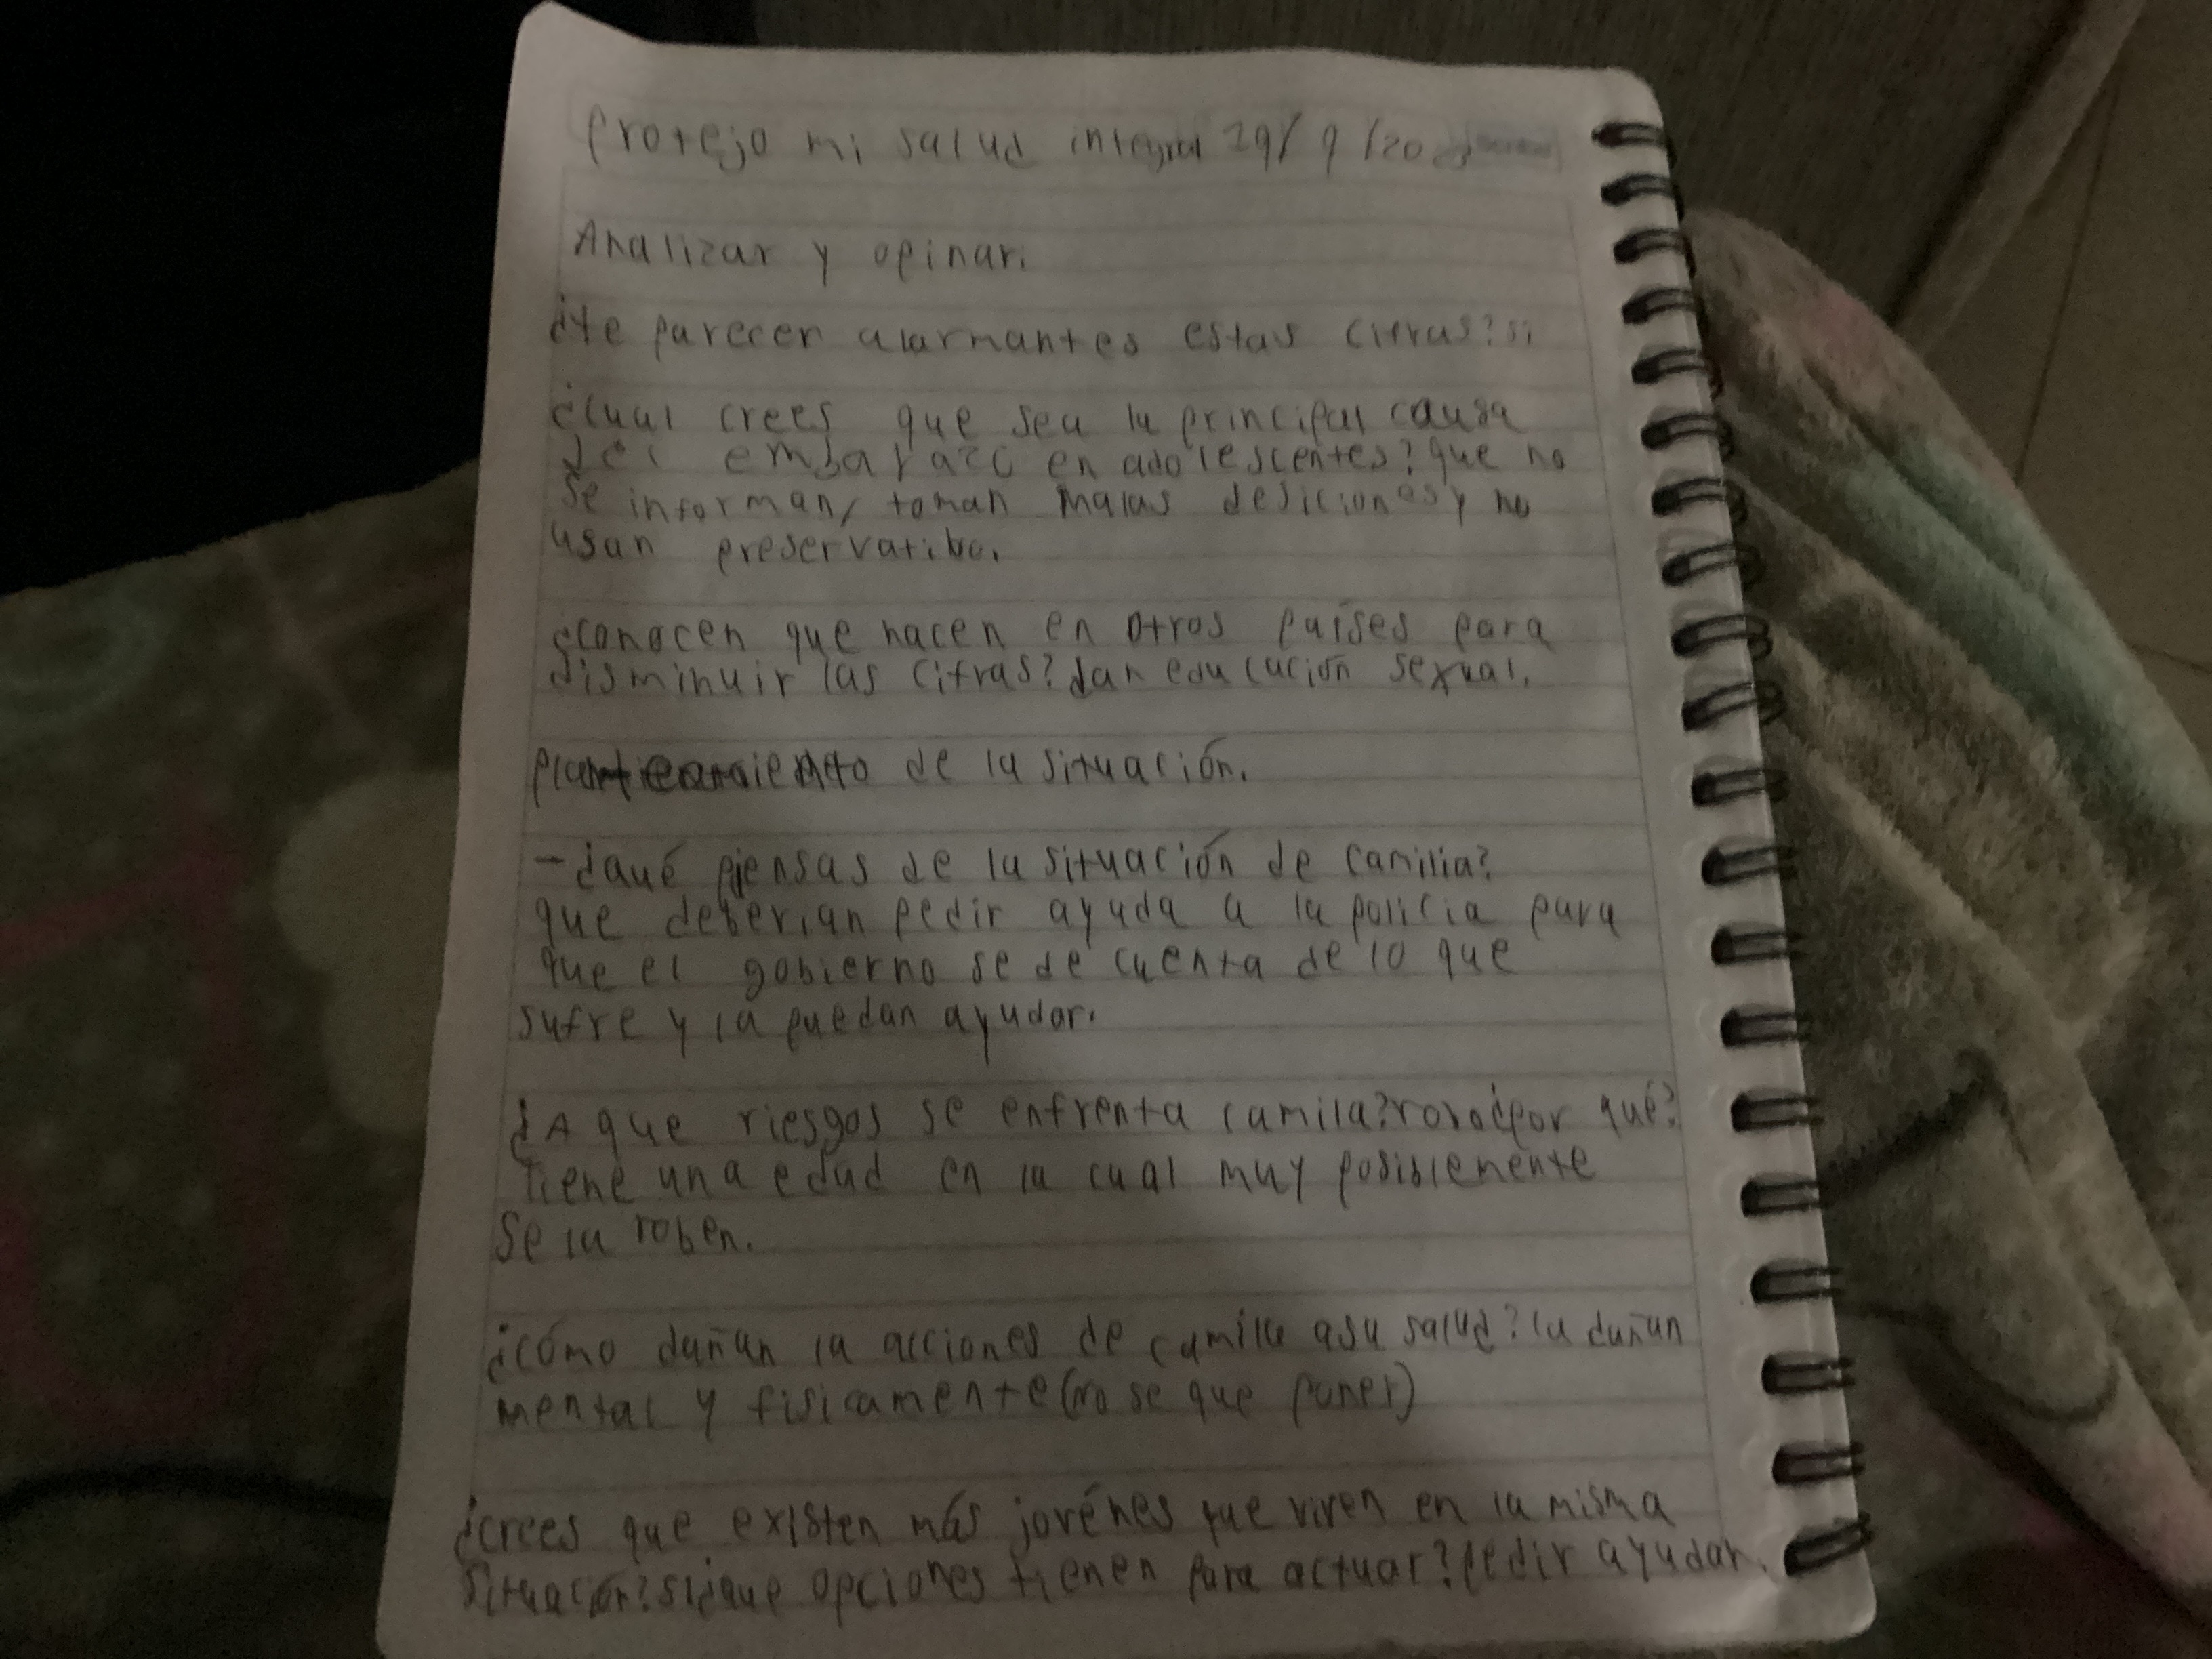 Protejo mi salud integral 29/9/20
Analizar y opinar.
¿te parecen alarmantes estas cifras? si
¿cual crees que sea la principal causa
del embarazo en adolescentes? que no
se informan, toman malas desiciones y no
usan preservatibo.
¿conocen que hacen en otros países para
disminuir las cifras? dan educación sexual.
planteamiento de la situación.
-¿qué piensas de la situación de camilia?
que deberian pedir ayuda a la policia para
que el gobierno se de cuenta de lo que
sufre y la puedan ayudar.
¿A que riesgos se enfrenta camila? robo ¿por qué?
tiene una edad en la cual muy posiblemente
se la roben.
¿cómo dañan la acciones de camila a su salud? la dañan
mental y fisicamente (no se que poner)
¿crees que existen más jovénes que viven en la misma
situación? si ¿que opciones tienen para actuar? pedir ayudar.